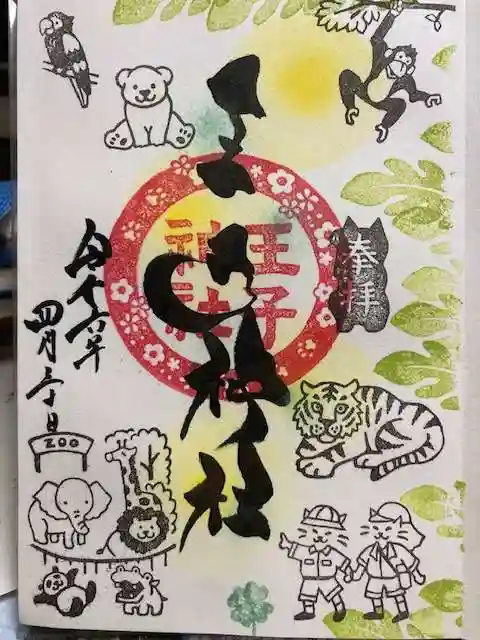 奉拝
王子神社
王子
神社
令和六年
四月三十日
ZOO